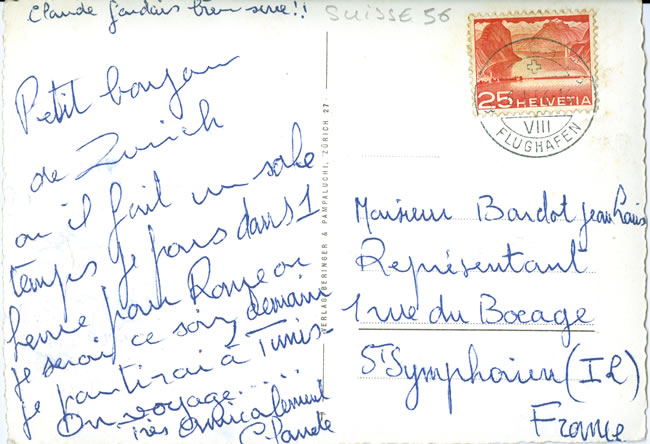 Claude Jandais bien seul !!
SUISSE 56
Petit bonjour
de Zurich
ou il fait un sale
temps je pars dans 1
heure pour Rome ou
je serai ce soir, demain
je partirai à Tunis.
On voyage.....
Très amicalement
Claude
VERLAG BERINGER & PAMPALUCHI, ZÜRICH 27
25 HELVETIA
VIII
FLUGHAFEN
Monsieur Bardot jean Louis
Représentant
1 rue du Bocage
St Symphorien (IL)
France